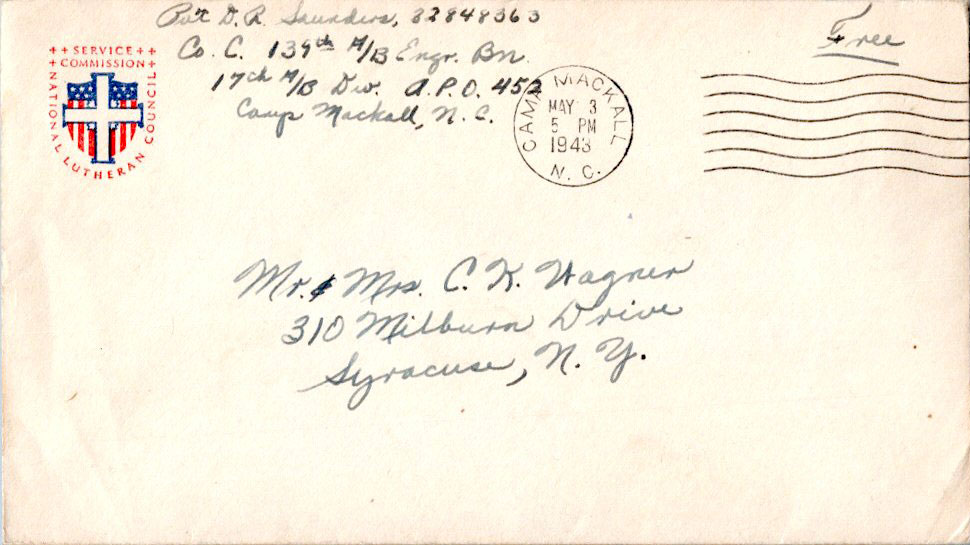 Pvt D. R. Saunders, 32848363
Co. C. 139th A/B Engr. Bn.
17th A/B Div. A.P.O. 452
Camp Mackall, N. C.
Free
++ SERVICE ++
+ COMMISSION +
NATIONAL LUTHERAN COUNCIL
CAMP MACKALL
MAY 3
5 PM
1943
N. C.
Mr. & Mrs. C. K. Wagner
310 Milburn Drive
Syracuse, N. Y.